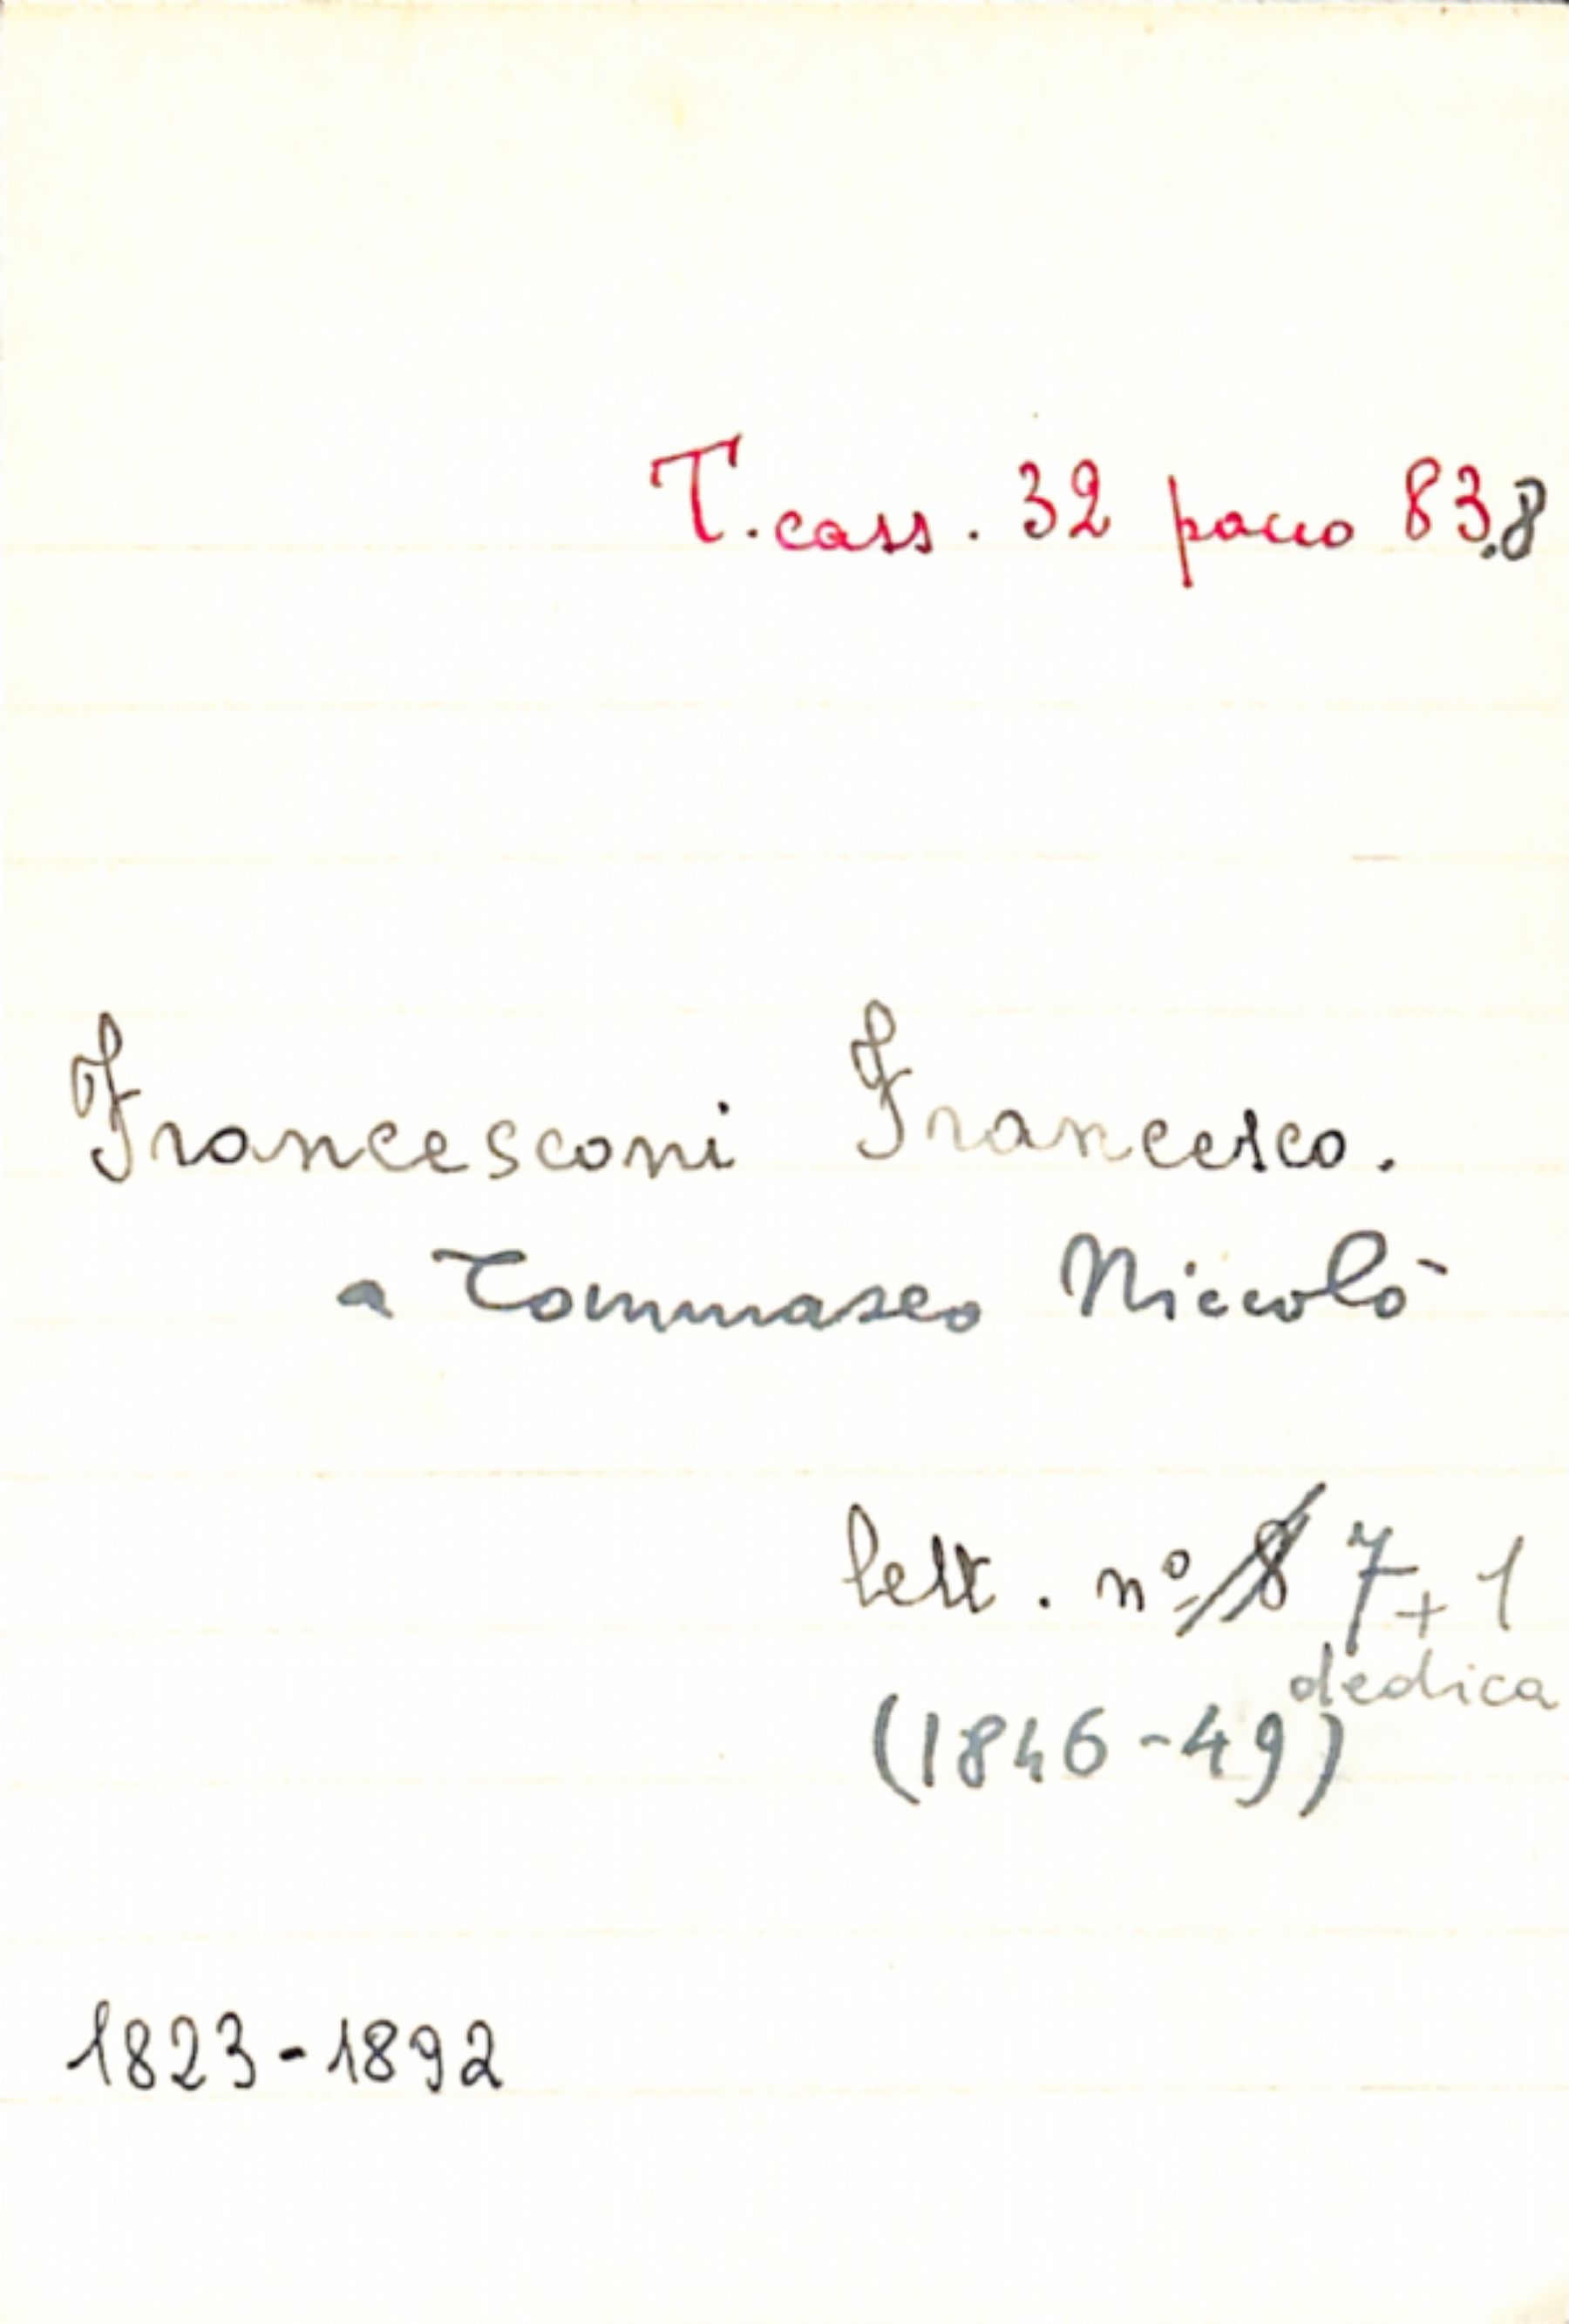 T. cass. 32 pacco 83.8
Francesconi Francesco.
a Tommaseo Niccolò
lett. nº 8 7 + 1
dedica
(1846-49)
1823-1892